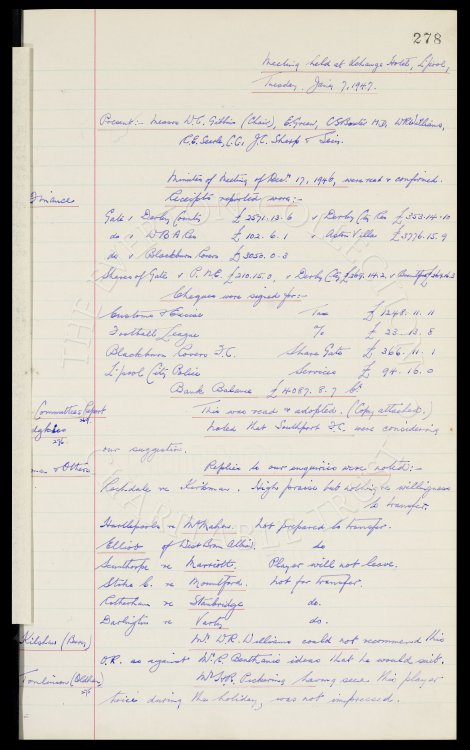 278
Meeting held at Exchange Hotel, L'pool,
Tuesday. Jan'y 7, 1947.
Present:- Messrs W.C. Gibbins (Chair), E. Green, C.S. Baxter M.D. W.R. Williams,
R.E. Searle, C.C., J.C. Sharp & Sec.
Minutes of Meeting of Dec. 17, 1946, were read & confirmed.
Finance
Receipts reported were:-
Gate v Derby County £ 2571.13.6 v Derby Cty Res £ 353.14.10
do v W B A Res £ 102.6.1 v Aston Villa £ 3776.15.9
do v Blackburn Rovers £ 3053.0.3
Shares of Gate v P.N.E. £ 210.15.0, v Derby Cty £ 369.14.2, v
Cheques were signed for:-
Customs & Excise Tax £ 1248.11.11
Football League % £ 23.13.8
Blackburn Rovers F.C. Share Gate £ 366.11.1
L'pool City Police Services £ 94.16.0
Bank Balance £ 4087.8.7
Committees Report
This was read & adopted. (Copy attached.)
Noted that Southport F.C. were considering
our suggestion.
& Others
Replies to our enquiries were noted:-
Rochdale re Kirkman. High praise but nothing re willingness
to transfer.
Hartlepools re McMahon. Not prepared to transfer.
Elliott of West Brom Albion. do
Scunthorpe re Marriott. Player will not leave.
Stoke C. re Mountford. Not for transfer.
Rotherham re Stanbridge do.
Darlington re Varty do.
Kilshaw (Bury)
Mr. W.R. Williams could not recommend this
O.R. as against Mr. R. Benthams ideas that he would suit.
Tomlinson (Oldham)
Mr. H.R. Pickering having seen this player
twice during the holiday, was not impressed.